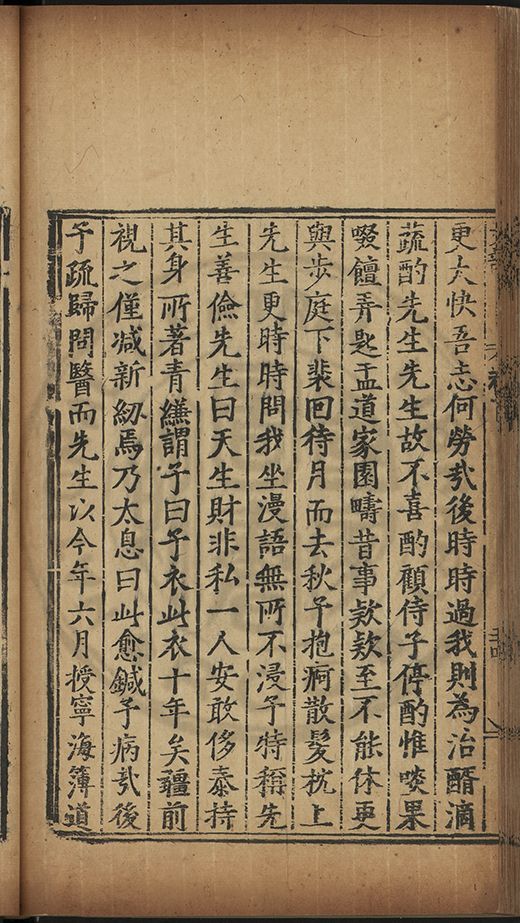 更大快吾志何勞㢤後時時過我則為治醑滴
蔬酌先生先生故不喜酌顧侍子停酌惟啖果
啜饘弄匙盂道家園疇昔事欵欵至不能休更
與步庭下裴回待月而去秋予抱痾散髮枕上
先生更時時問我坐漫語無所不浸予特稱先
生善儉先生曰天生財非私一人安敢侈泰持
其身所著青縑謂予曰予衣此衣十年矣疆前
視之僅减新紉焉乃太息曰此愈鍼予病㢤後
予疏歸問醫而先生以今年六月授寧海簿道